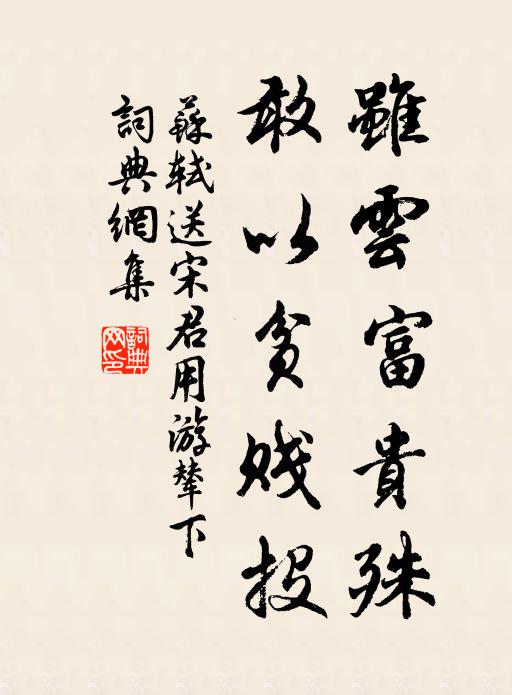 雖雲富貴殊
敢以貧賤投
蘇軾送宋君用游輦下
詞典網集
詞典網印